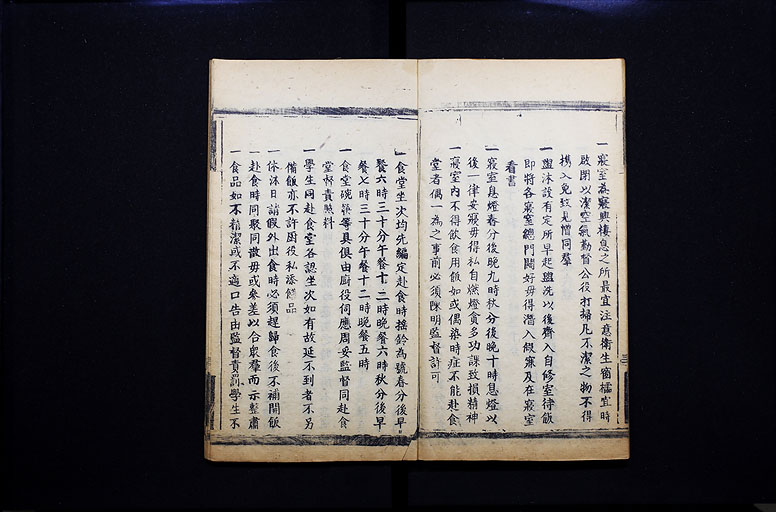 一寢室為寢興棲息之所最宜注意衛生窗櫺宜時
啟閉以潔空氣勤督公役打掃凡不潔之物不得
攜入免致見憎同羣
一盥沐設有定所早起盥洗以後齊入自修室待飯
即將各寢室總門關好毋得潛入假寐及在寢室
看書
一寢室息燈春分後晚九時秋分後晚十時息燈以
後一律安寢毋得私自燃燈貪多功課致損精神
一寢室內不得飲食用飯如或偶染時症不能赴食
堂者偶一為之事前必須陳明監督許可
一食堂坐次均先編定赴食時搖鈴為號春分後早
餐六時三十分午餐十二時晚餐六時秋分後早
餐七時三十分午餐十二時晚餐五時
一食堂碗箸等具俱由廚役伺應周妥監督同赴食
堂督責照料
一學生同赴食堂各認坐次如有故延不到者不另
備飯亦不許廚役私添饌品
一休沐日請假外出食時必須趕歸食後不補開飯
一赴食時同聚同散毋或參差以合眾羣而示整肅
一食品如不精潔或不適口告由監督責罰學生不